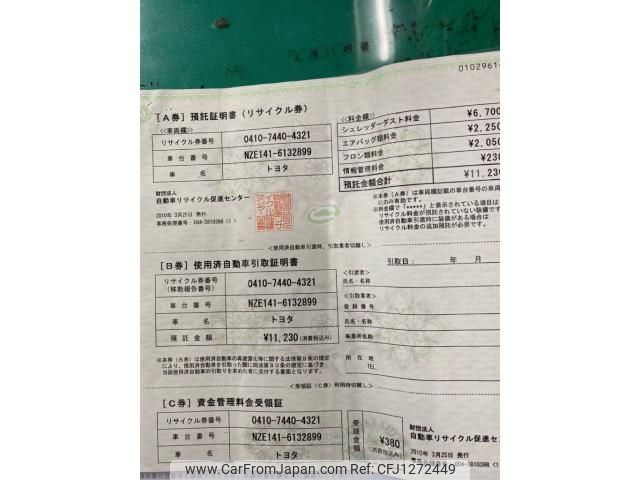 0102961
[A券] 預託証明書(リサイクル券)
<<車両欄>>
リサイクル券番号 0410-7440-4321
車台番号 NZE141-6132899
車名 トヨタ
<<料金欄>>
シュレッダーダスト料金 ¥6,700
エアバッグ類料金 ¥2,250
フロン類料金 ¥2,050
情報管理料金 ¥230
預託金額合計 ¥11,230
財団法人
自動車リサイクル促進センター
2010年 3月25日 発行
事務処理番号:004-3810398 (1)
*本券(A券)は車両欄記載の車台番号の車両
にのみ有効です。
*料金欄で「*****」と表示されている項目は
リサイクル料金が預託されていない装備です。
使用済自動車引渡時に装備がある場合は
リサイクル料金の追加預託が必要です。
<使用済自動車引渡時、引取業者切離し>
[B券] 使用済自動車引取証明書
引取日: 年 月
リサイクル券番号
(移動報告番号) 0410-7440-4321
車台番号 NZE141-6132899
車名 トヨタ
預託金額 ¥11,230(消費税込み)
<引渡者>
氏名・名称
<引取業者>
登録番号
氏名・名称
事業所名称
所在地
TEL.
*本券(B券)は使用済自動車の再資源化等に関する法律第9条の規定
により、使用済自動車を引取った際に同法第80条の規定に基づき
当該使用済自動車の引取りを求めた者に交付する書面となります。
<受領証(C券)利用時切離し>
[C券] 資金管理料金受領証
リサイクル券番号 0410-7440-4321
車台番号 NZE141-6132899
車名 トヨタ
受領金額 ¥380
(消費税込み)
財団法人
自動車リサイクル促進セン
2010年 3月25日 発行
004-3810398 (1
www.CarFromJapan.com - CFJ1272449